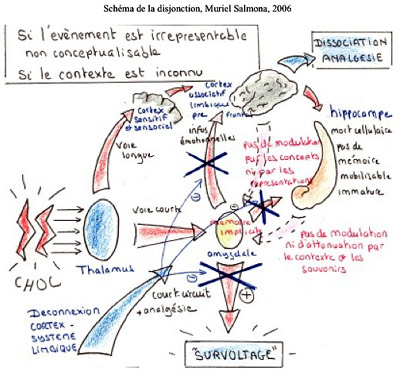 Schéma de la disjonction, Muriel Salmona, 2006
Si l'évènement est irreprésentable
non conceptualisable
Si le contexte est inconnu
DISSOCIATION
ANALGESIE
cortex
sensitif
et sensoriel
cortex
associatif
limbique
pre frontal
hippocampe
mort cellulaire
pas de
mémoire
mobilisable
immature
voie
longue
infos
émotionnelles
pas de modulation
par les concepts
ni par les
représentations
CHOC
Thalamus
voie courte
mémoire
implicite
amygdale
pas de modulation
ni d'attenuation par
le contexte et les
souvenirs
Deconnexion
CORTEX -
SYSTEME
LIMBIQUE
court circuit
+ analgésie
"SURVOLTAGE"